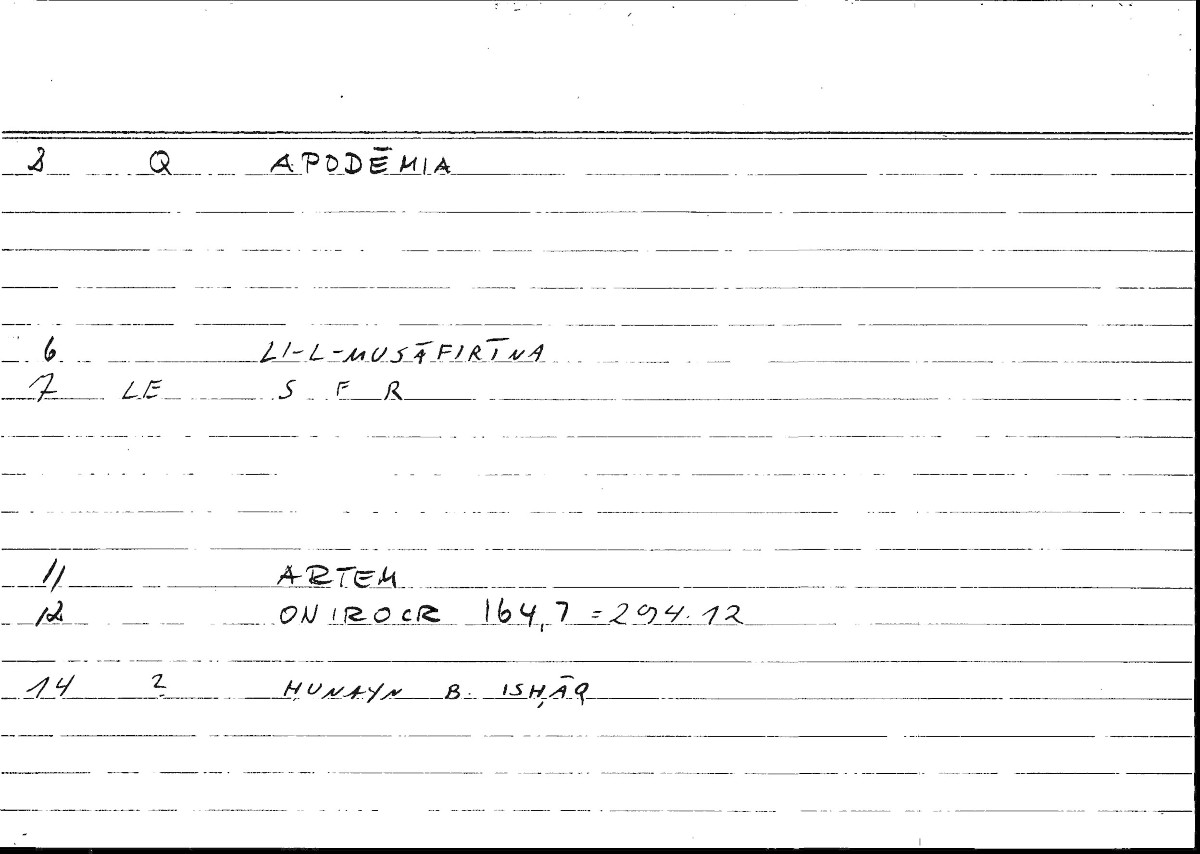 2 Q APODĒMIA
6 LI-L-MUSĀFIRĪNA
7 LE S F R
11 ARTEM
12 ONIROCR 164,7 = 294.12
14 2 HUNAYN B. ISḤĀQ